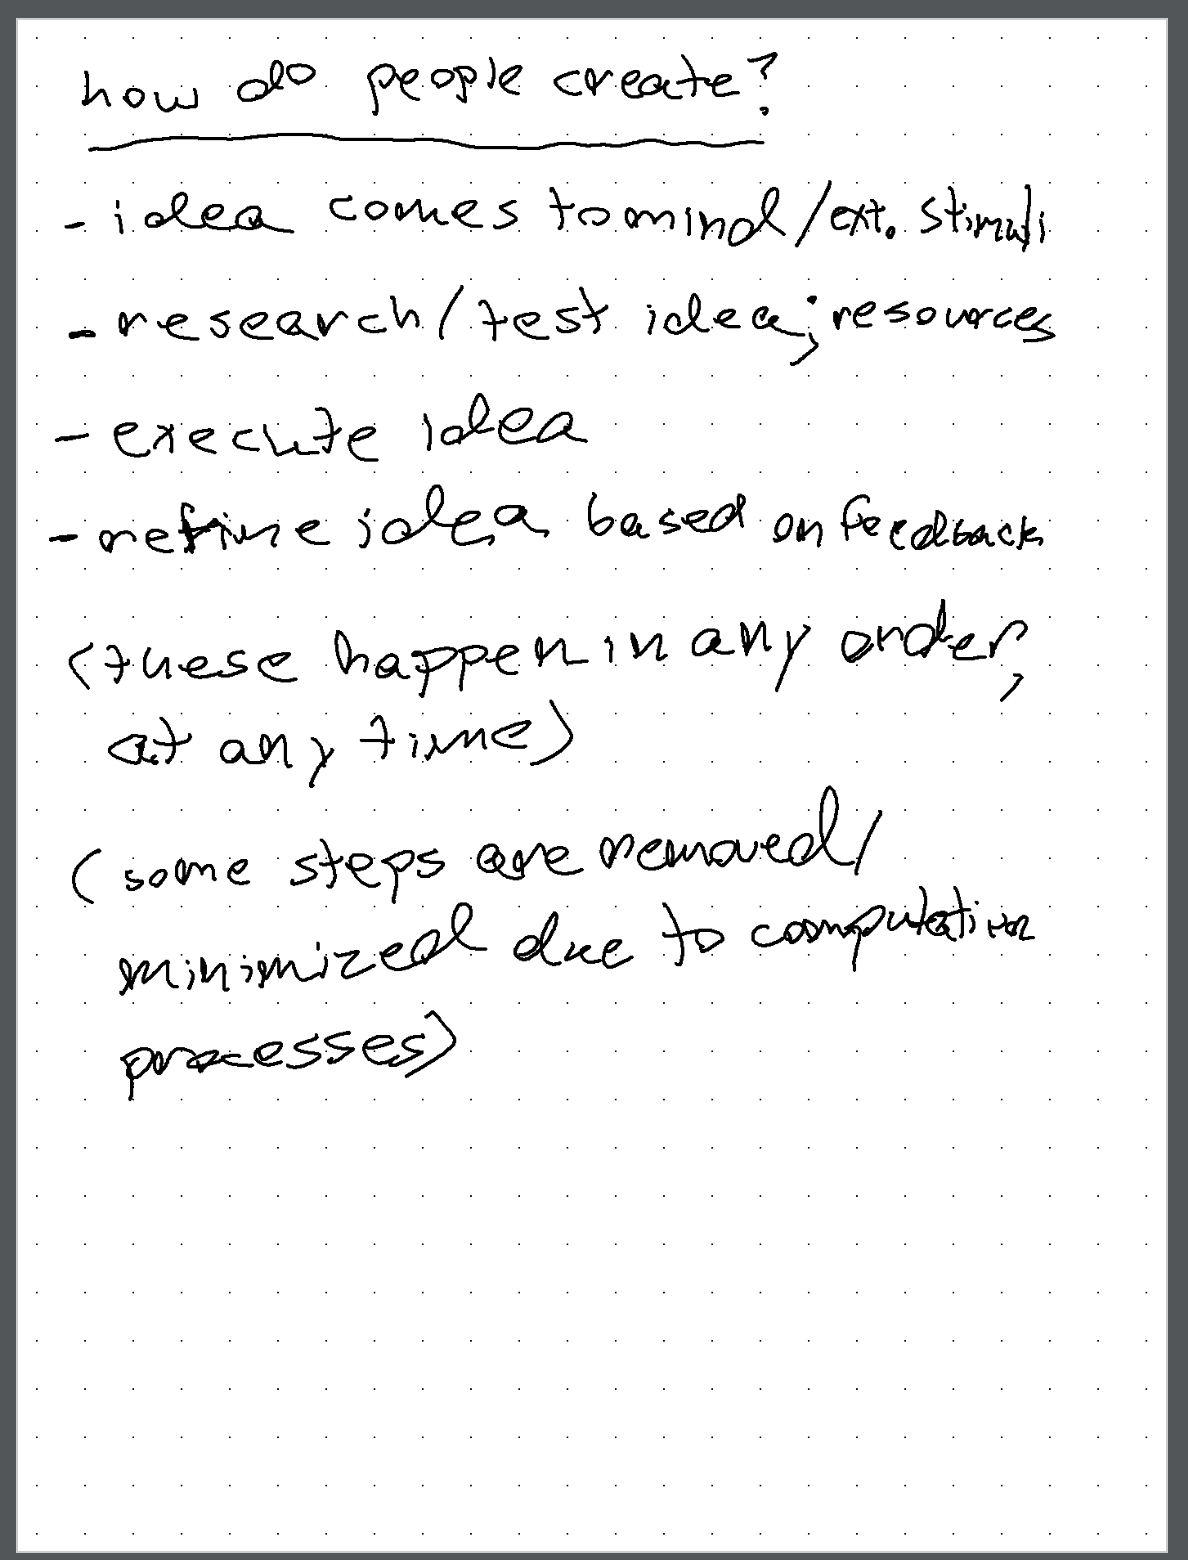 how do people create?
- idea comes to mind/ext. stimuli
- research/test idea; resources
- execute idea
- refine idea based on feedback
(these happen in any order,
at any time)
(some steps are removed/
minimized due to computation
processes)